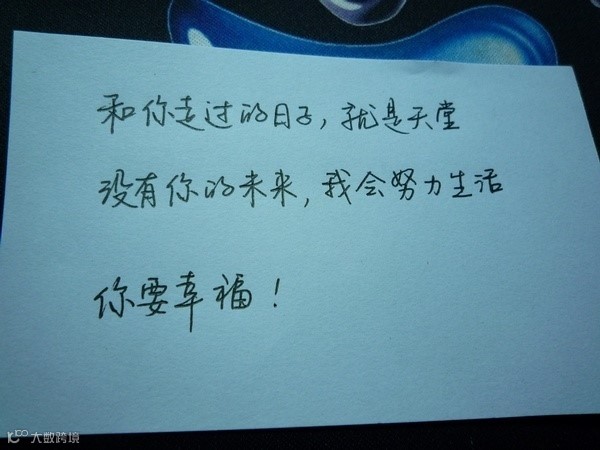 和你走过的日子，就是天堂
没有你的未来，我会努力生活
你要幸福！
大数跨境